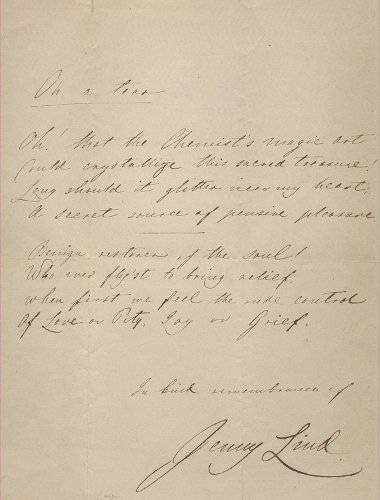 On a tear
Oh! that the Chemist's magic art
Could crystallize this sacred treasure!
Long should it glitter near my heart,
A secret source of pensive pleasure
Benign restorer of the soul!
Who ever fly'st to bring relief
When first we feel the rude control
Of Love or Pity, Joy or Grief.
In kind remembrance of
Jenny Lind